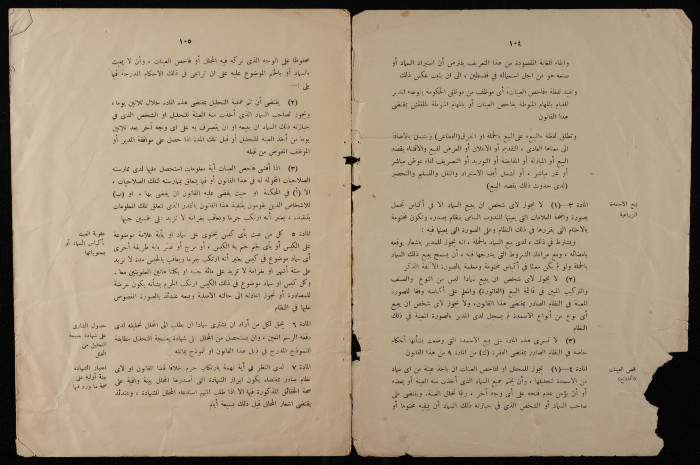 ١٠٤
وابفاء للغاية المقصودة من هذا التعريف يفترض أن استيراد السماد أو
صنعه هو من اجل استعماله في فلسطين، الى ان يثبت عكس ذلك
وتفيد لفظة «فاحص العينات» أي موظف من موظفي الحكومة يفوضه المدير
القيام بالمهام المنوطة بفاحص العينات أو بالمهام المنوطة بالمفتش بمقتضى
هذا القانون
وتطلق لفظة «البيع» على البيع بالجملة أو المفرق (القطاعي) وتشمل بالاضافة
الى معناها العادي، التقديم أو الاعلان أو العرض للبيع والاقتناء بقصد
البيع أو المبادلة أو المقايضة أو التوريد أو التصريف لقاء عوض مباشر
أو غير مباشر، أو تشمل أيضا الاستيراد والنقل والتسليم والتحضير
(لدى حدوث ذلك بقصد البيع)
بيع الاسمدة
الزراعية
المادة ٣—(١) لا يجوز لاي شخص ان يبيع السماد الا في أكياس تحمل
بصورة واضحة العلامات التي يعينها المندوب السامي بنظام يصدره وتكون مختومة
بالاختام التي يقررها في ذلك النظام وعلى الصورة التي يعينها فيه:
ويشترط في ذلك، لدى بيع السماد بالجملة، انه يجوز للمدير باشعار يوقعه
بامضائه، ومع مراعاة الشروط التي يدرجها فيه، أن يسمح ببيع ذلك السماد
بالجملة ولو لم يكن معبئا في أكياس مختومة ومعلمة بالصورة الآنفة الذكر
(٢) لا يجوز لاي شخص ان يبيع سمادا ليس من النوع والصنف
والتركيب المبين في قائمة البيع (الفاتورة) والمعلم على أكياسه وفقا للصورة
المعينة في النظام الصادر بمقتضى هذا القانون، ولا يجوز لاي شخص ان يبيع
أي نوع من أنواع الاسمدة لم يسجل لدى المدير بالصورة المعينة في ذلك
النظام
(٣) لا تسري هذه المادة على بيع الاسمدة التي وضعت بشأنها أحكام
خاصة في النظام الصادر بمقتضى الفقرة (ك) من المادة ٩ من هذا القانون
فحص العينات
(النماذج)
المادة ٤—(١) يجوز للمحلل أو لفاحص العينات ان يأخذ عينة من أي سماد
من الاسمدة لتحليلها، وأن يختم جميع السماد الذي أخذت منه العينة أو بعضه
أو أن يؤمن عدم فتحه على أي وجه آخر، ريثما تحلل العينة، ويقتضى على
صاحب السماد أو الشخص الذي في حيازته ذلك السماد أن يبقيه مختوما أو
١٠٥
محفوظا على الوجه الذي تركه فيه المحلل أو فاحص العينات، وأن لا يعبث
بالسماد أو بالختم الموضوع عليه على ان تراعى في ذلك الاحكام المدرجة فيما
يلي :—
(٢) يقتضى أن تتم عملية التحليل بمقتضى هذه المادة خلال ثلاثين يوما،
ويجوز لصاحب السماد الذي أخذت منه العينة للتحليل أو الشخص الذي في
حيازته ذلك السماد ان يبيعه او ان يتصرف به على اي وجه آخر بعد ثلاثين
يوما من أخذ العينة للتحليل أو قبل تلك المدة اذا حصل على موافقة المدير أو
الموظف المفوض من قبله
(٣) اذا أفشى فاحص العينات أية معلومات استحصل عليها لدى ممارسته
الصلاحيات المخولة له في هذا القانون أو فيما يتعلق بممارسته تلك الصلاحيات،
الا (أ) في المحكمة او حيث يقضى عليه القانون ان يفضي بها، او (ب)
للاشخاص الذين يقومون بتنفيذ هذا القانون بالقدر الذي تتعلق تلك المعلومات
بتنفيذه، يعتبر أنه ارتكب جرما ويعاقب بغرامة لا تزيد على خمسين جنيها
عقوبة العبث
بأكياس السماد أو
بمحتوياتها
المادة ٥ كل من عبث بأي كيس يحتوي على سماد او بأية علامة موضوعة
على الكيس أو بأي ختم ختم به الكيس، أو مزج أو غير بأية طريقة أخرى
أي سماد موضوع في كيس يعتبر أنه ارتكب جرما ويعاقب بالحبس مدة لا تزيد
على ستة أشهر او بغرامة لا تزيد على مائة جنيه او بكلتا هاتين العقوبتين معا،
وكل كيس أو سماد موضوع في ذلك الكيس ارتكب الجرم بشأنه يكون عرضة
للمصادرة أو يجوز اعادته الى حالته الاصلية وبيعه عندئذ بالصورة المنصوص
عليها في النظام
حصول الشاري
على شهادة بنتيجة
التحليل من
المحلل
المادة ٦ يحق لكل من أراد ان يشتري سمادا ان يطلب الى المحلل تحليله لدى
دفعه الرسم المعين، وان يستحصل من المحلل على شهادة بنتيجة التحليل مطابقة
للنموذج المدرج في ذيل هذا القانون او لنموذج يماثله
اعتبار الشهادة
بينة أولية على
صحة ما ورد فيها
المادة ٧ لدى النظر في أية تهمة بارتكاب جرم خلافا لهذا القانون او لاي
نظام صادر بمقتضاه يكون ابراز الشهادة التي أصدرها المحلل بينة وافية على
صحة الحقائق المذكورة فيها الا اذا طلب المتهم استدعاء المحلل للشهادة، وعندئذ
يقتضى اشعار المحلل قبل ذلك بسبعة أيام